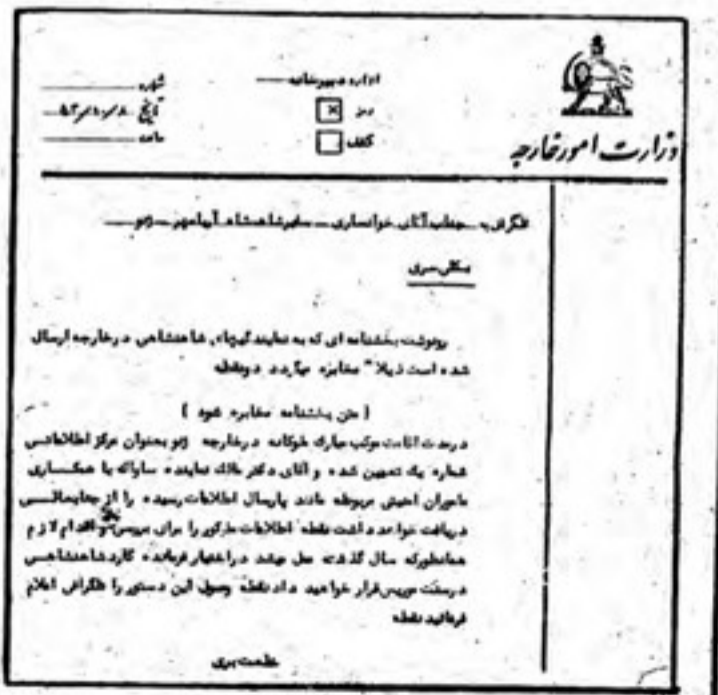 وزارت امور خارجه
اداره دبیرخانه
رمز
کشف
شماره
تاریخ ۵۳/۱۰/۸
ساعت
تلگراف به جناب آقای خوانساری سفیر شاهنشاه آریامهر ژنو
بکلی سری
رونوشت بخشنامه ای که به نمایندگیهای شاهنشاهی در خارجه ارسال
شده است ذیلا" مخابره میگردد دونقطه
( متن بخشنامه مخابره شود )
در مدت اقامت موکب مبارک ملوکانه در خارجه ژنو بعنوان مرکز اطلاعاتی
شماره یک تعیین شده و آقای دکتر نماینده ساواک با همکاری
مامورین امنیتی مربوطه مانند پارسال اطلاعات رسیده را از
دریافت خواهد داشت نقطه اطلاعات مذکور را برای بررسی و اقدام لازم
همانطورکه سال گذشته عمل میشد در اختیار فرمانده گارد شاهنشاهی
در سنت موریس قرار خواهید داد نقطه وصول این دستور را تلگرافی اعلام
فرمائید نقطه
خلعت بری